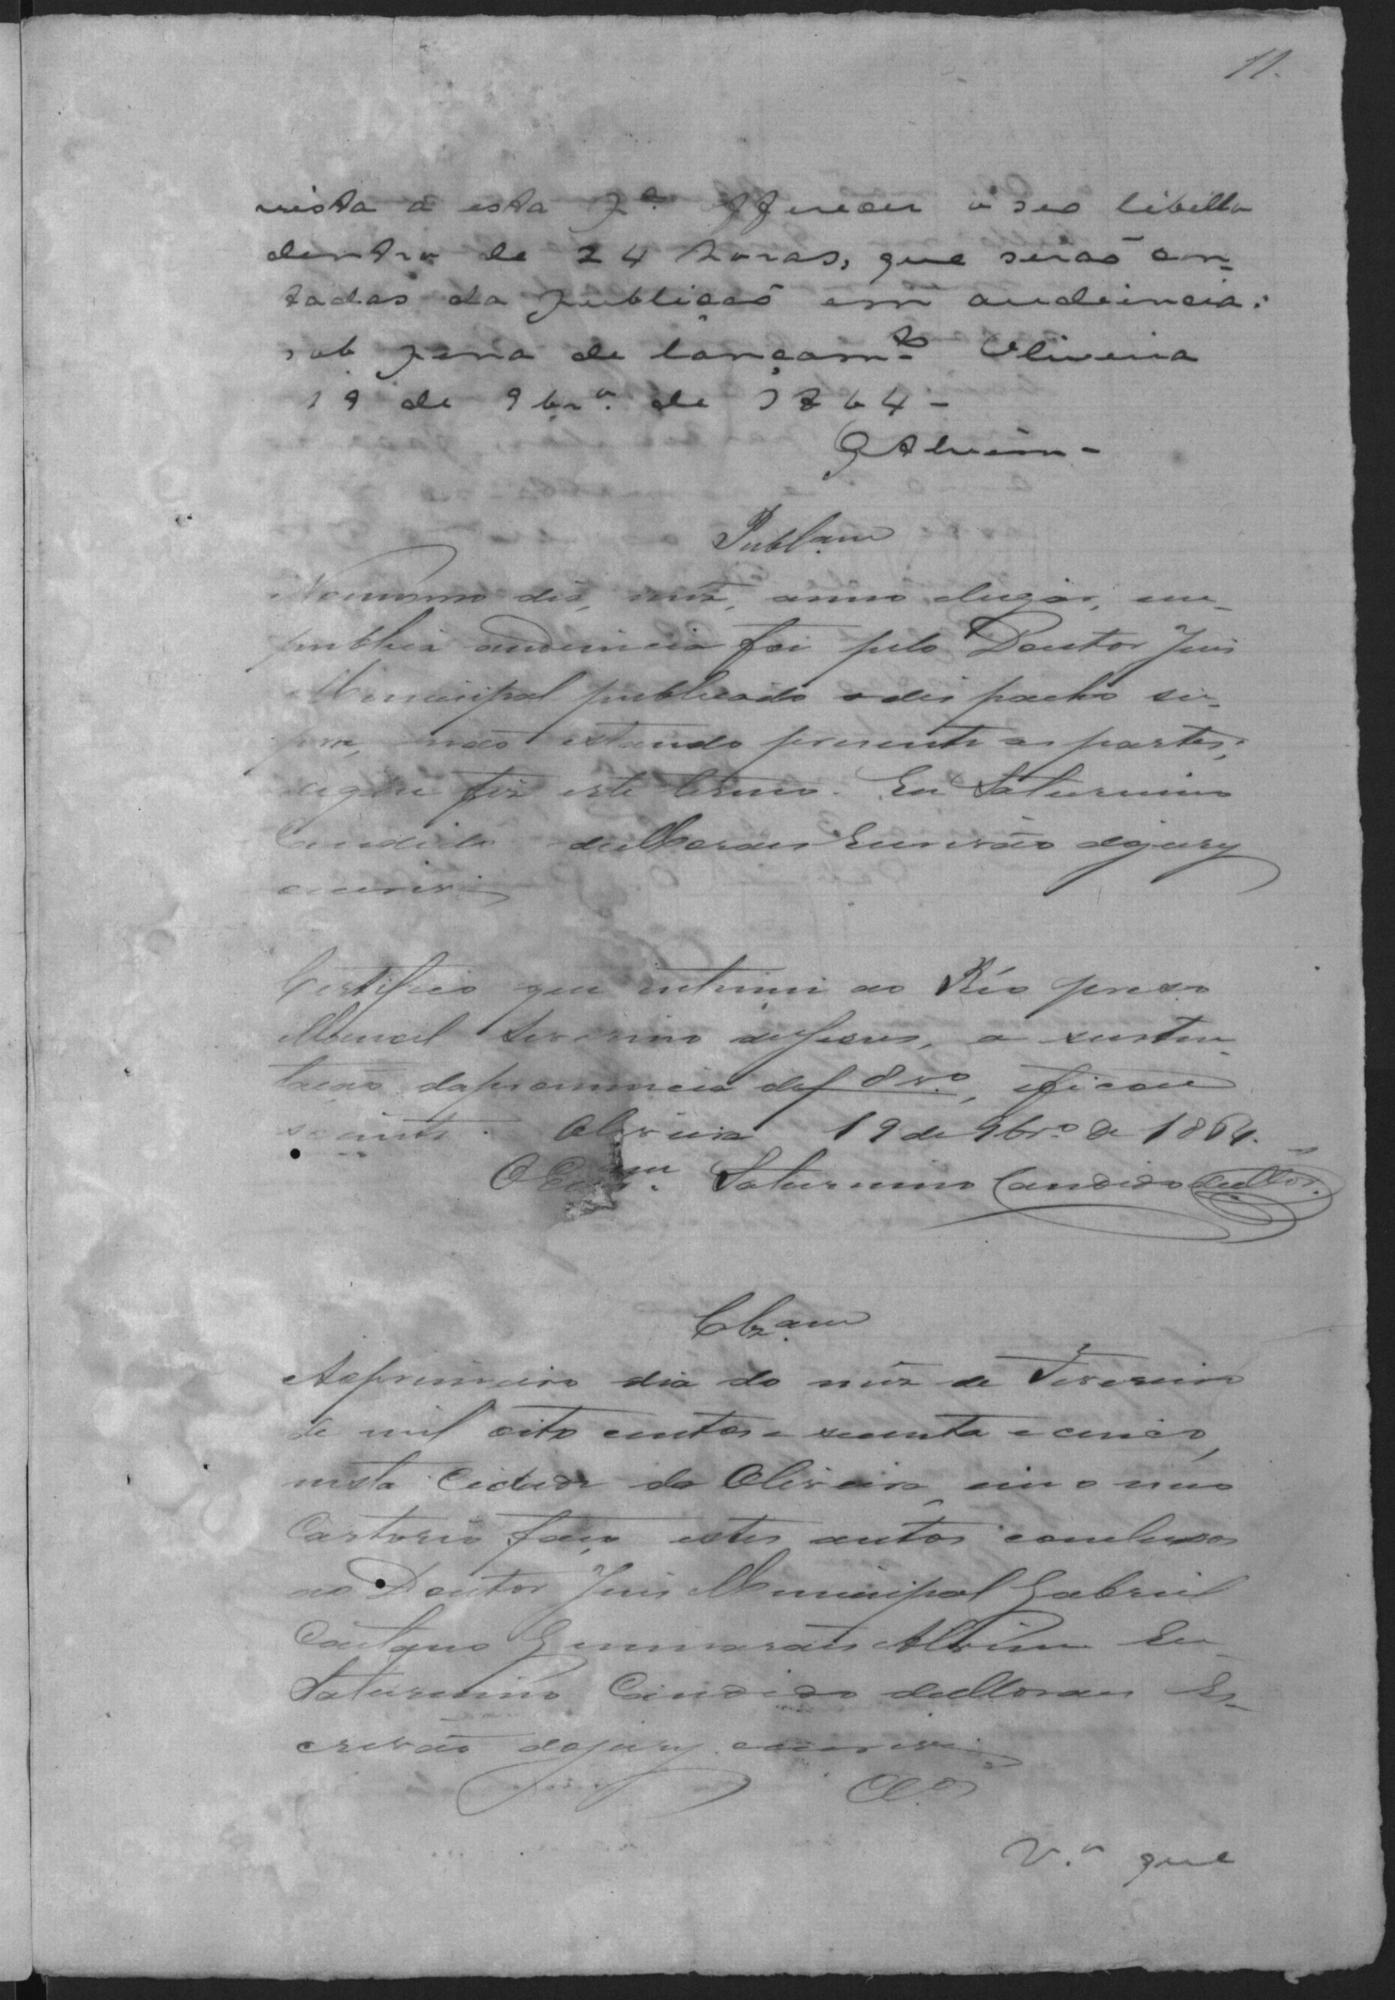 11.
vista a esta p.ª offerecer o seo libello
dentro de 24 horas, que serão con-
tadas da publicaçõ em audiencia:
sob pena de lançam.to Oliveira
19 de 9br.º de 1864-
GAlvim-
Publ.am
No mesmo dia, mez, anno, elugar, em
publica audiencia foi pelo Doutor Juis
Municipal publicado o despacho su-
pra, não estando presente as partes;
do que fiz este termo. Eu Saturnino
Candido de Moraes Escrivão dojury
escrevi
Certifico que intimei ao Réo preso
Manoel Severino de , a susten-
tação dapronuncia def 8 v.º, eficou
sciente. Oliveira 19 de 9br.º de 1864.
O Saturnino Candido deMor.s
Clz.am
Aoprimeiro dia do mez de Fevereiro
de mil oito centos e secenta e cinco,
nesta Cidade da Oliveira, em o meo
Cartorio faço estes autos conclusos
ao Doutor Juis Municipal Gabriel
Caetano Guimarães Alvim. Eu
Saturnino Candido deMoraes Es-
crivão dojury escrevi
Cl.os
V.ª que